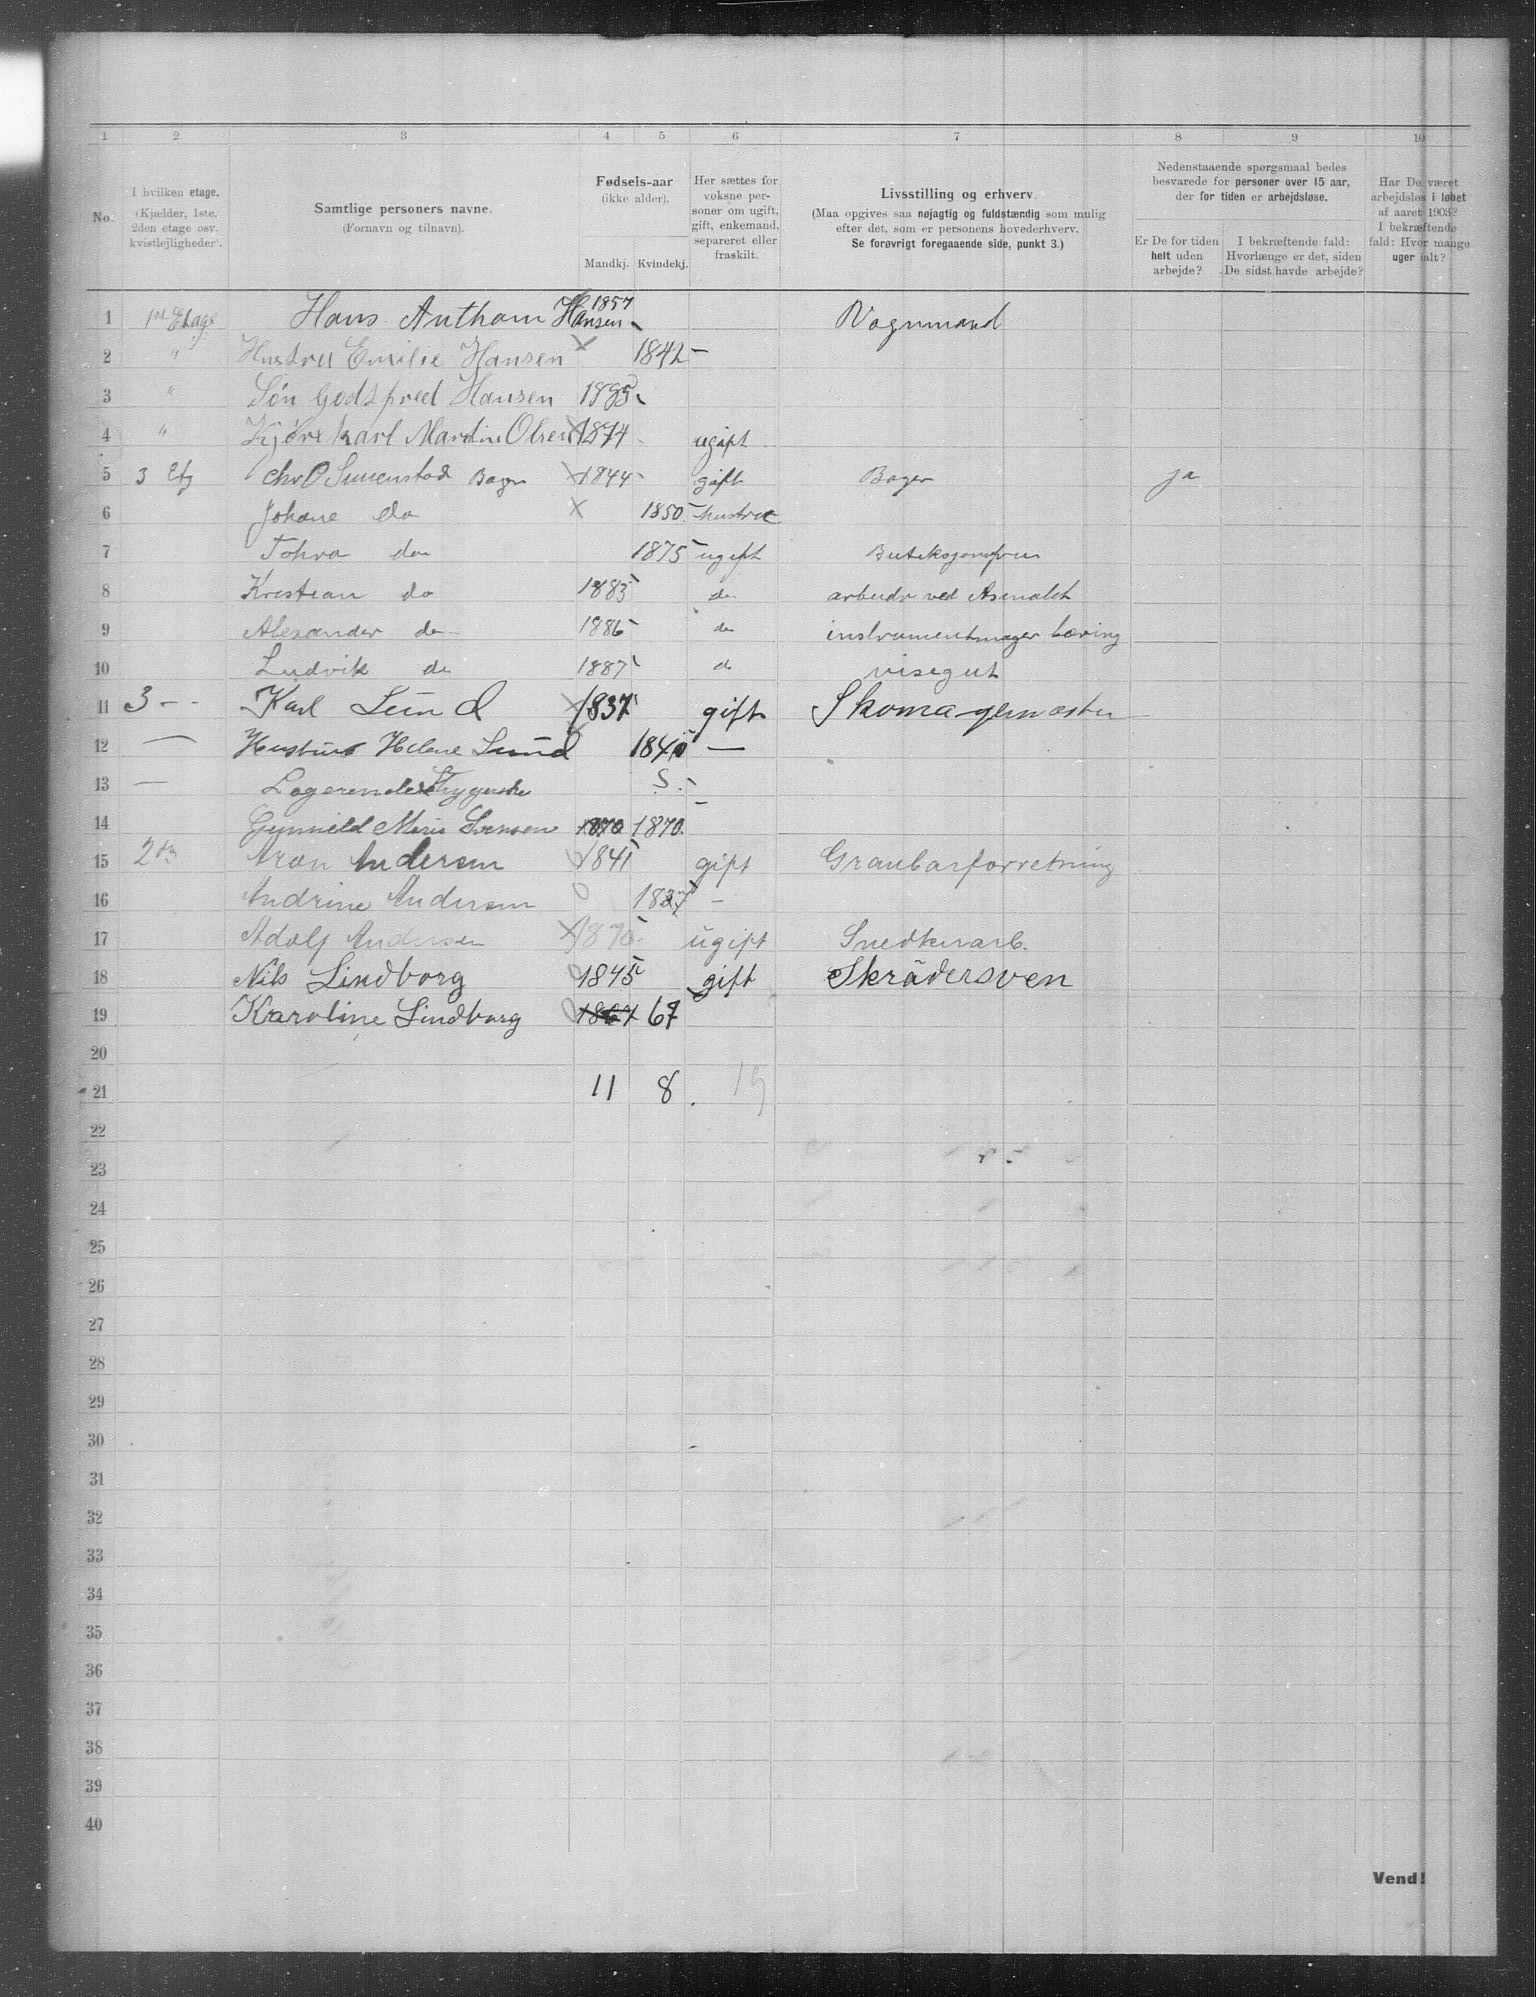 1 2 3 4 5 6 7 8 9 10
No.
I hvilken etage.
(Kjælder, 1ste. 2den etage osv. kvistlejligheder).
Samtlige personers navne.
(Fornavn og tilnavn).
Fødsels-aar
(ikke alder).
Mandkj. Kvindekj.
Her sættes for voksne personer om ugift, gift, enkemand, separeret eller fraskilt.
Livsstilling og erhverv.
(Maa opgives saa nøjagtig og fuldstændig som mulig efter det, som er personens hovederhverv.
Se forøvrigt foregaaende side, punkt 3.)
Nedenstaaende spørgsmaal bedes besvarede for personer over 15 aar, der for tiden er arbejdsløse.
Er De for tiden helt uden arbejde?
I bekræftende fald: Hvorlænge er det, siden De sidst havde arbejde?
Har De været arbejdsløs i løbet af aaret 1903? I bekræftende fald: Hvor mange uger ialt?
1 1st Etage Hans Anthom Hansen 1857 Vognmand
2 " Hustru Emilie Hansen 1842 —
3 " Søn Godtfred Hansen 1885
4 " Kjørekarl Martin Olsen 1874 ugift
5 3 Etg Chr O Simenstad Bager 1844 gift Bager ja
6 Johane do 1850 hustru
7 Tohra do 1875 ugift Butiksjomfru
8 Kristian do 1883 do arbeidr ved
9 Alexander do 1886 do instrumentmager læring
10 Ludvik do 1887 do visegut
11 3 - - Karl Lund 1837 gift Skomagermæster
12 — Hustru Helene Lund 1840 —
13 — Logerende Sygerske S. -
14 Gunnield Marie Svensen 1870 1870
15 Aron Andersen 1841 gift Granbarforretning
16 Andrine Andersen 1837 —
17 Adolf Andersen 1870 ugift Snedkerarb.
18 Nils Lindborg 1845 gift Skrädersven
19 Karoline Lindborg 1867 67
20
21 11 8 . 19
22
23
24
25
26
27
28
29
30
31
32
33
34
35
36
37
38
39
40
Vend!